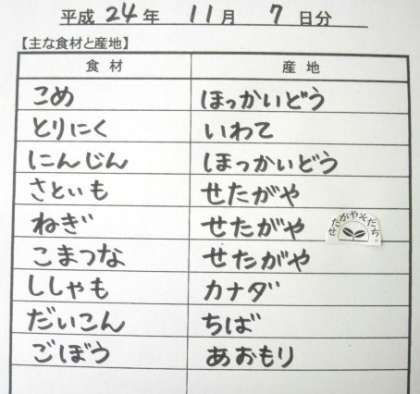 平成 24年 11月 7日分
【主な食材と産地】
食材 産地
こめ ほっかいどう
とりにく いわて
にんじん ほっかいどう
さといも せたがや
ねぎ せたがや せたがやそだち
こまつな せたがや
ししゃも カナダ
だいこん ちば
ごぼう あおもり